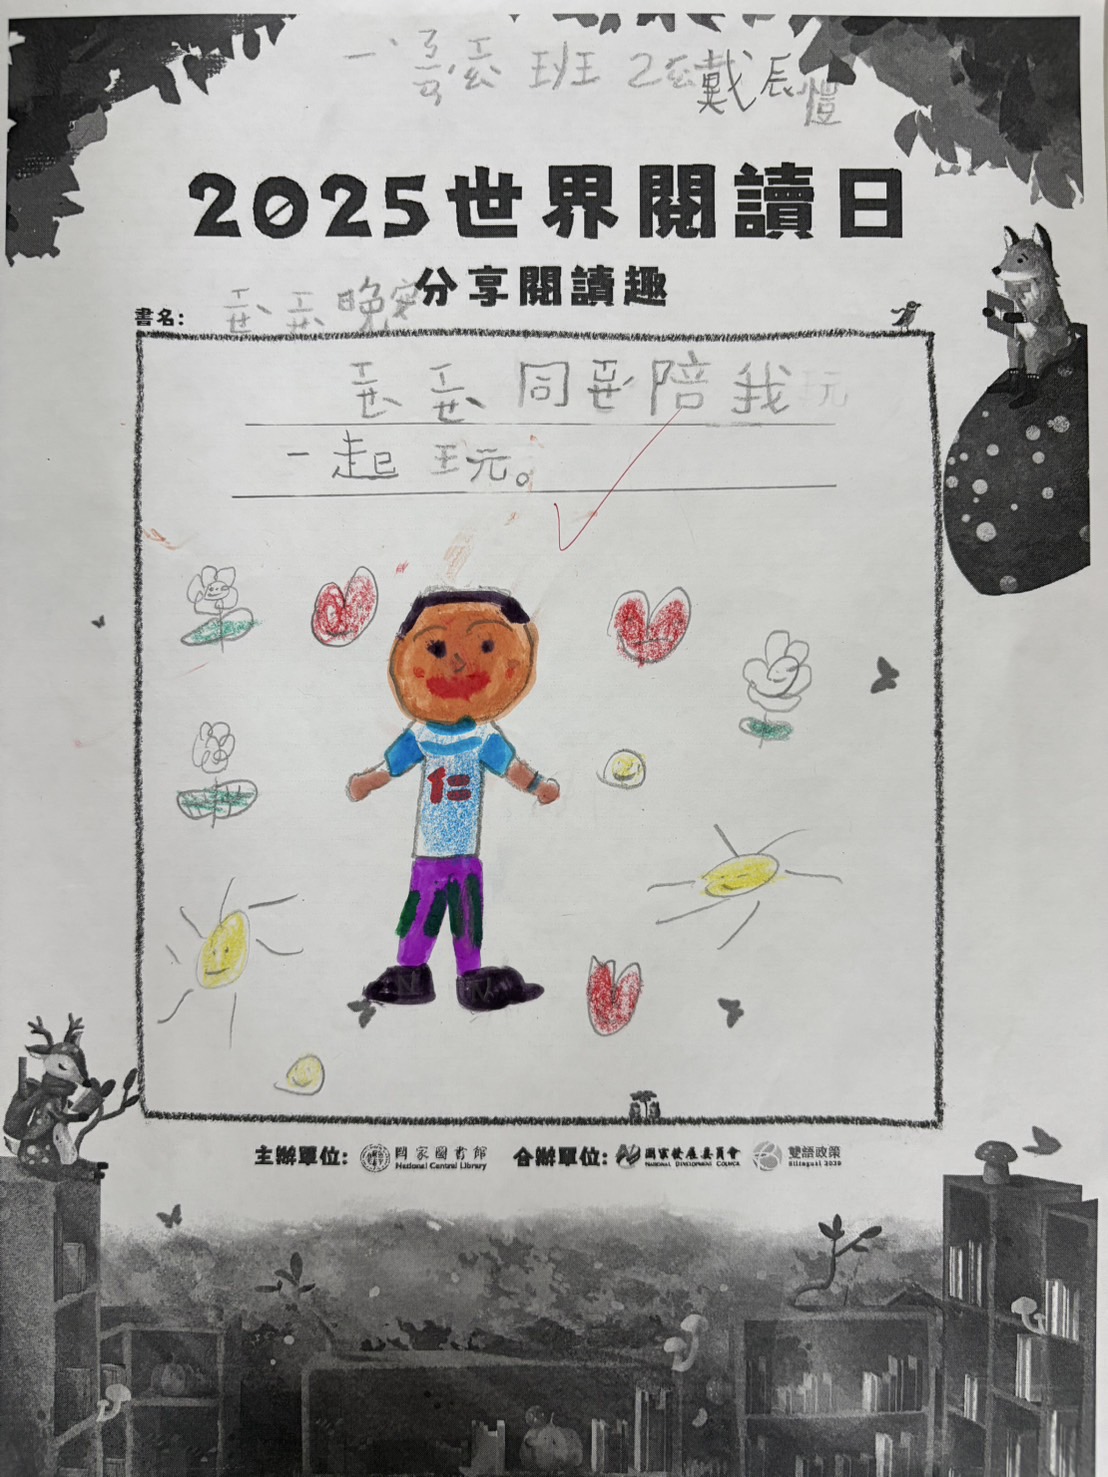 一 班 2 戴辰愷
2025世界閱讀日
分享閱讀趣
書名： 晚安
同 陪我
一起玩。
仁
主辦單位： 國家圖書館 National Central Library 合辦單位： 國家發展委員會 NATIONAL DEVELOPMENT COUNCIL 雙語政策 Bilingual 2030